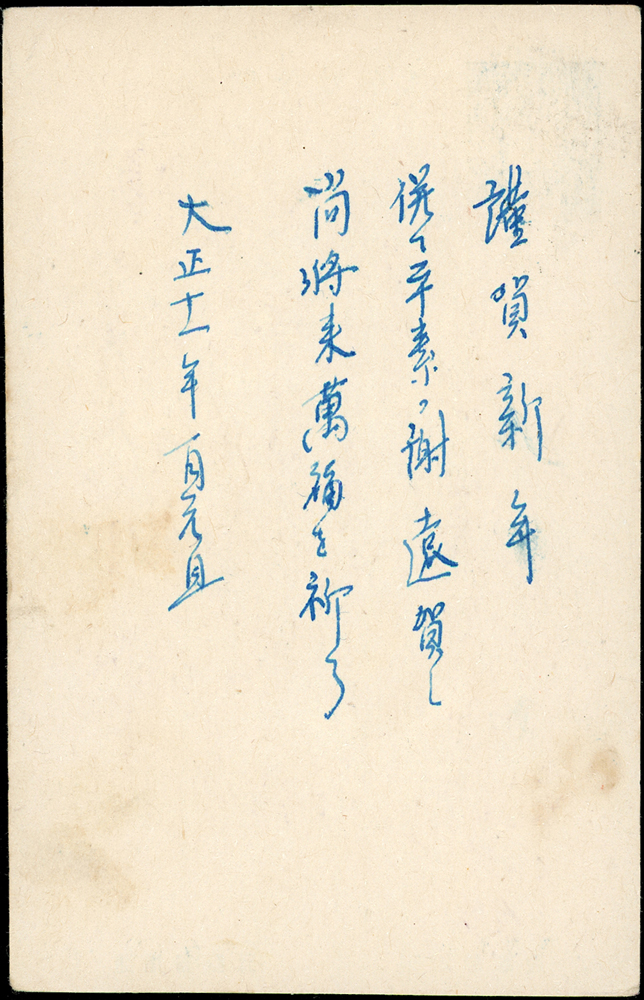 謹賀新年
併て平素ノ謝遠賀し
尚将来萬福を祈る
大正十一年一月元旦